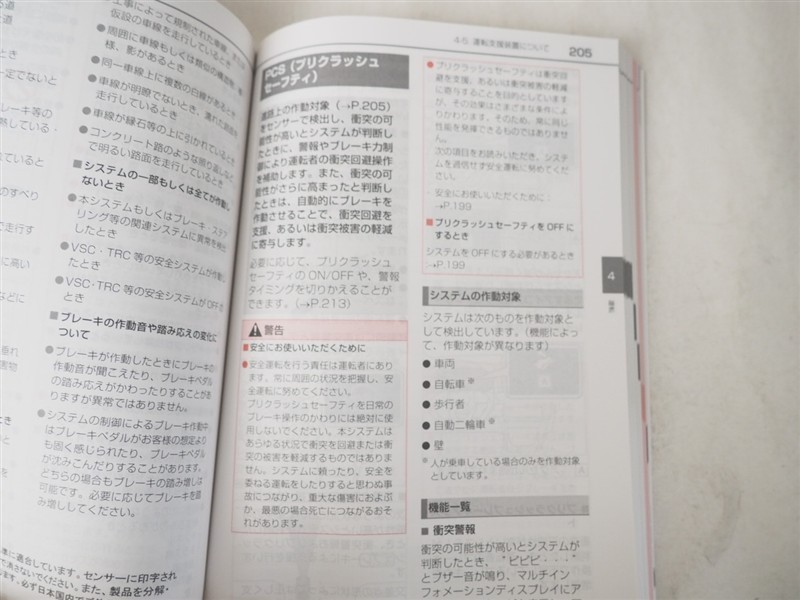 工事によって規制された車線、または
仮設の車線を走行しているとき
●周囲に車線もしくは類似の構造物、模
様、影があるとき
●同一車線上に複数の白線があるとき
●車線が明瞭でないとき、濡れた路面を
走行しているとき
●車線が縁石等の上に引かれているとき
●コンクリート路のような照り返しなど
で明るい路面を走行しているとき
■システムの一部もしくは全てが作動し
ないとき
●本システムもしくはブレーキ・ステア
リング等の関連システムに異常を検出
したとき
●VSC・TRC 等の安全システムが作動し
たとき
●VSC・TRC 等の安全システムが OFF の
とき
■ブレーキの作動音や踏み応えの変化に
ついて
●ブレーキが作動したときにブレーキの
作動音が聞こえたり、ブレーキペダル
の踏み応えがかわったりすることがあ
りますが異常ではありません。
●システムの制御によるブレーキ作動中
はブレーキペダルがお客様の想定より
も固く感じられたり、ブレーキペダル
が沈みこんだりすることがあります。
どちらの場合もブレーキの踏み増しは
可能です。必要に応じてブレーキを踏
み増ししてください。
4-5. 運転支援装置について
205
PCS（プリクラッシュ
セーフティ）
道路上の作動対象（→P.205）
をセンサーで検出し、衝突の可
能性が高いとシステムが判断し
たときに、警報やブレーキ力制
御により運転者の衝突回避操作
を補助します。また、衝突の可
能性がさらに高まったと判断し
たときは、自動的にブレーキを
作動させることで、衝突回避を
支援、あるいは衝突被害の軽減
に寄与します。
必要に応じて、プリクラッシュ
セーフティの ON/OFF や、警報
タイミングを切りかえることが
できます。（→P.213）
警告
■安全にお使いいただくために
●安全運転を行う責任は運転者にあり
ます。常に周囲の状況を把握し、安
全運転に努めてください。
プリクラッシュセーフティを日常の
ブレーキ操作のかわりには絶対に使
用しないでください。本システムは
あらゆる状況で衝突を回避または衝
突の被害を軽減するものではありま
せん。システムに頼ったり、安全を
委ねる運転をしたりすると思わぬ事
故につながり、重大な傷害におよぶ
か、最悪の場合死亡につながるおそ
れがあります。
●プリクラッシュセーフティは衝突回
避を支援、あるいは衝突被害の軽減
に寄与することを目的としています
が、その効果はさまざまな条件によ
りかわります。そのため、常に同じ
性能を発揮できるものではありませ
ん。
次の項目をお読みいただき、システ
ムを過信せず安全運転に努めてくだ
さい。
・安全にお使いいただくために：
→P.199
■プリクラッシュセーフティを OFF に
するとき
システムを OFF にする必要があるとき
→P.199
システムの作動対象
システムは次のものを作動対象と
として検出しています。（機能によっ
て、作動対象が異なります）
●車両
●自転車※
●歩行者
●自動二輪車※
●壁
※人が乗車している場合のみを作動対象
としています。
機能一覧
■ 衝突警報
衝突の可能性が高いとシステムが
判断したとき、“ピピピ・・・”
とブザー音が鳴り、マルチイン
フォメーションディスプレイにア
4